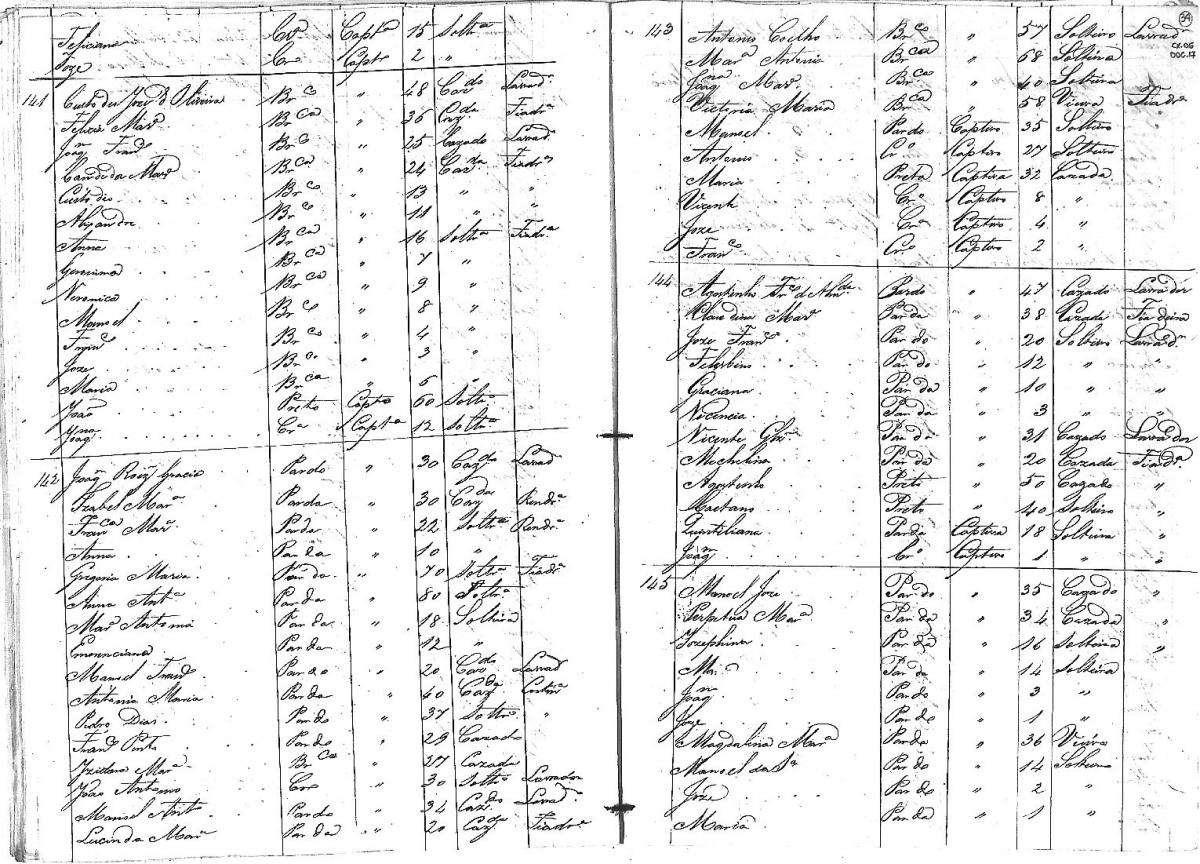 Feliciana Cra Capta 15 Soltra
Joze Cro Capto 2 "
141 Custodio Joze d Oliveira Brco " 48 Cazdo Lavrador
Felizia Mara Brca " 36 Cazda Fiadra
Joaqm Franco Brco " 25 Cazado Lavrador
Candida Mara Brca " 24 Cazda Fiadra
Custodio Brco " 13 " "
Alexandre Brco " 11 " "
Anna Brca " 16 Soltra Fiadra
Geracima Brca " 7 "
Veronica Brca " 9 "
Manoel Brco " 8 "
Franco Brco " 4 "
Joze Brco " 3 "
Maria Brca " 6 "
João Preto Capto 60 Soltro
Joaqna Cra Capta 12 Soltra
142 Joaqm Roiz Gracia Pardo " 30 Cazdo Lavrador
Izabel Mara Parda " 30 Cazda Rendra
Franca Mara Parda " 22 Soltra Rendra
Anna Parda " 10 "
Gregoria Maria Parda " 70 Soltra Fiadra
Anna Anta Parda " 80 Soltra
Mara Antonia Parda " 18 Solteira
Emerenciana Parda " 12 "
Manoel Franco Pardo " 20 Cazdo Lavrador
Antonia Maria Parda " 40 Cazda
Pedro Dias Pardo " 37 Soltro "
Franco Pardo " 29 Cazado
Izidora Mara Brca " 27 Cazada
João Antonio Cro " 30 Soltro Lavrador
Manoel Anto Pardo " 34 Cazdo Lavrador
Lucinda Mara Parda " 20 Cazda Fiadra
39
CX.06
DOC.17
143 Antonio Coelho Brco " 57 Solteiro Lavrador
Mara Antonia Brca " 68 Solteira
Joaqna Mara Brca " 40 Solteira
Victoria Maria Brca " 58 Viuva Fiadra
Manoel Pardo Captivo 35 Solteiro
Antonio Cro Captivo 27 Solteiro
Maria Preta Captiva 32 Cazada
Vicente Cro Captivo 8 "
Joze Cro Captivo 4 "
Franco Cro Captivo 2 "
144 Agostinho Frco d Almda Pardo " 47 Cazado Lavrador
Claudina Mara Parda " 38 Cazada Fiadeira
Joze Franco Pardo " 20 Solteiro Lavrador
Felisbino Pardo " 12 " "
Graciana Parda " 10 " "
Vicencia Parda " 3 " "
Vicente Pardo " 31 Cazado Lavrador
Michelina Parda " 20 Cazada Fiadra
Agostinho Preto " 50 Cazado "
Caetano Preto " 40 Solteiro "
Quintiliana Parda Captiva 18 Solteira "
Joaqm Cro Captivo 1 " "
145 Manoel Joze Pardo " 35 Cazado
Perpetua Mara Parda " 34 Cazada "
Jozephina Parda " 16 Solteira "
Mara Parda " 14 Solteira
Joaqm Pardo " 3 "
Joze Pardo " 1 "
Magdalena Mara Parda " 36 Viuva
Manoel da Sa Pardo " 14 Solteiro
Joze Pardo " 2 "
Maria Parda " 1 "